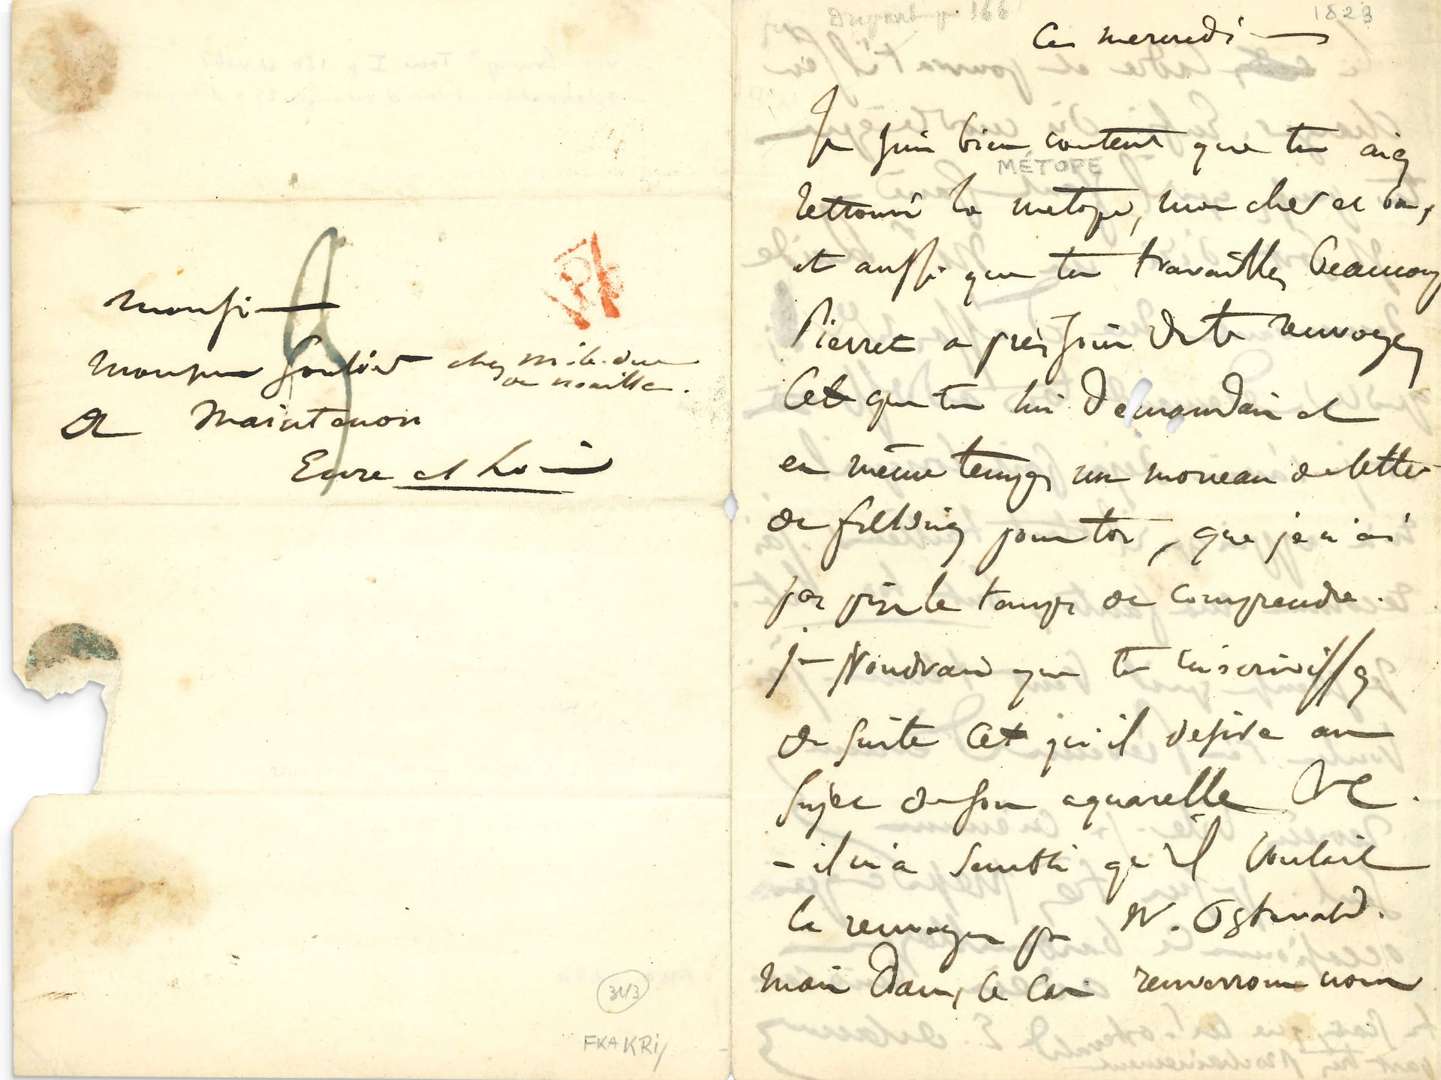 Monsieur
Monsieur Soulier chez M. le duc
de Noailles.
A Maintenon
Eure et Loir
313
1823
Ce mercredi
Je suis bien content que tu aies
MÉTOPE
retrouvé la métope, mon cher et bon,
et aussi que tu travailles beaucoup
Pierret a pris soin de te renvoyer
Ce que tu lui demandais et
en même temps un morceau de lettre
de fielding pour toi, que je n'ai
pas pris le temps de comprendre.
je voudrais que tu m'écrivisses
de suite ce qu'il désire au
sujet de son aquarelle &c.
- il m'a semblé qu'il voulait
la renvoyer par W. Ostervald.
mais dans ce cas renverrons nous